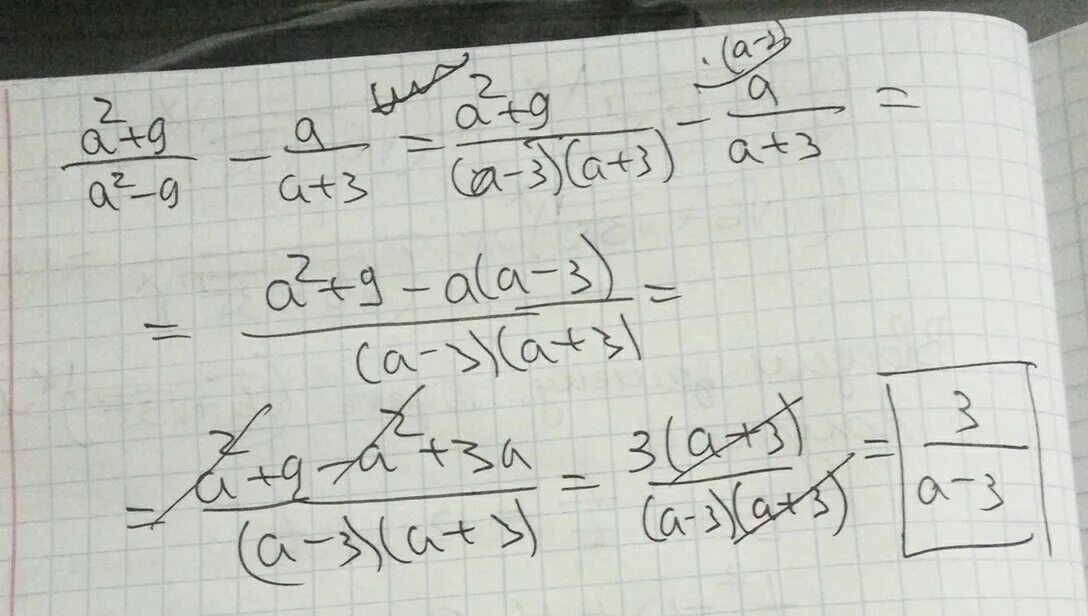 (a²+9)/(a²-9) - a/(a+3) = (a²+9)/((a-3)(a+3)) - a/(a+3) ·(a-3) =
= (a²+9-a(a-3))/((a-3)(a+3)) =
= (a²+9-a²+3a)/((a-3)(a+3)) = 3(a+3)/((a-3)(a+3)) = 3/(a-3)